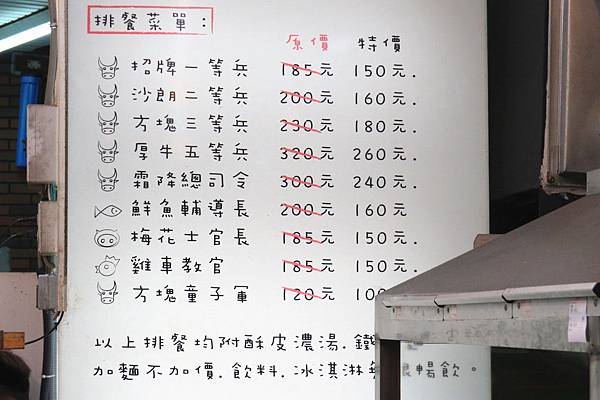 排餐菜單：
原價 特價
招牌一等兵 185元 150元.
沙朗二等兵 200元 160元.
方塊三等兵 230元 180元.
厚牛五等兵 320元 260元.
霜降總司令 300元 240元.
鮮魚輔導長 200元 160元
梅花士官長 185元 150元.
雞車教官 185元 150元.
方塊童子軍 120元 10
以上排餐均附酥皮濃湯.鐵
加麵不加價.飲料.冰淇淋 暢飲。